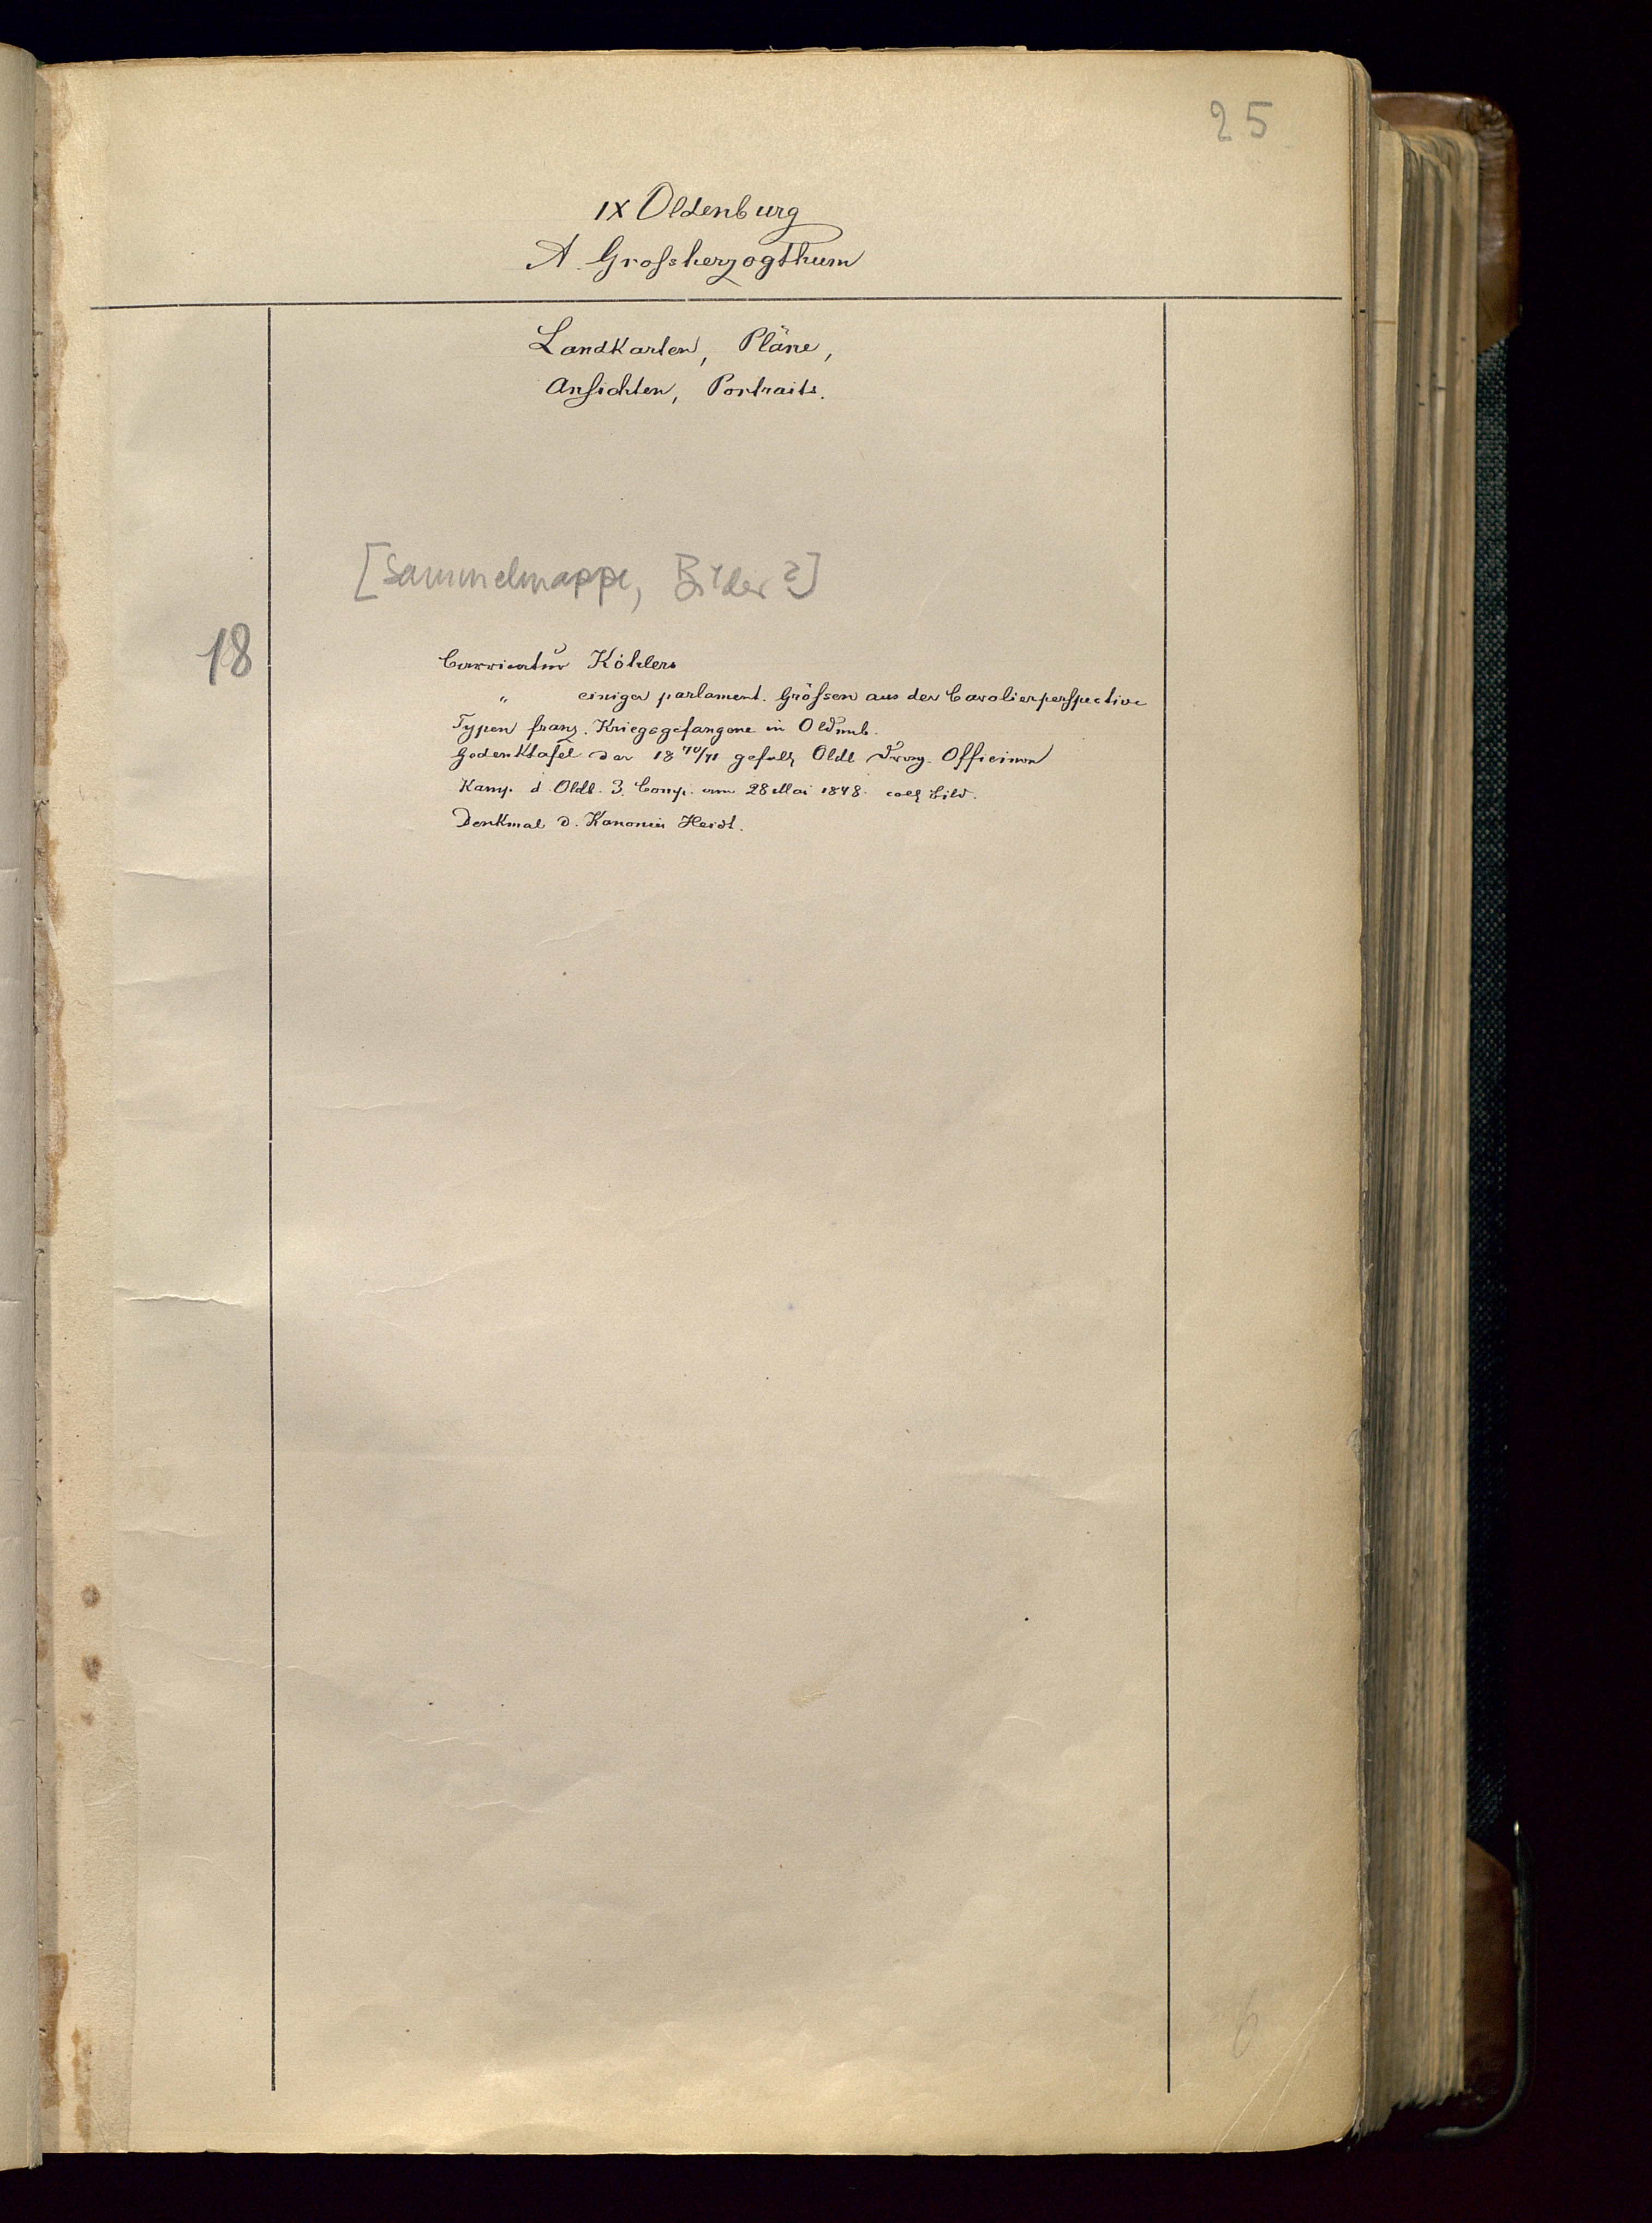 25
IX Oldenburg
A. Grossherzogthum
Landkarten, Pläne,
Ansichten, Portraits.
[Sammelmappe, Bilder?]
18
Carricatur Köhlers
" einiger parlament. Grössen aus der Cavalierperspective
Typen franz. Kriegsgefangene in Oldenb.
Gedenktafel der 18 70/71 gefall. Oldb Drag. Officieren
Kamp. d. Oldb. 3. Comp. am 28 Mai 1848. Bild.
Denkmal d. Kanonier Heidt.
6